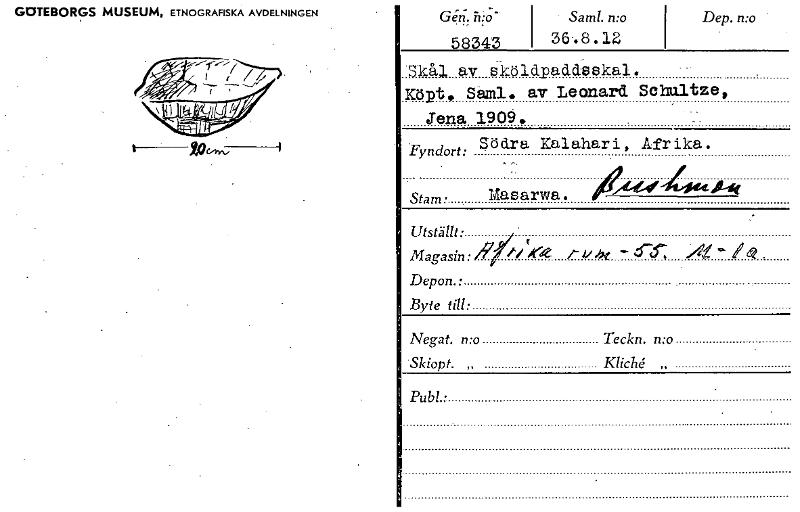 GÖTEBORGS MUSEUM, ETNOGRAFISKA AVDELNINGEN
20 cm
Gen. n:o Saml. n:o Dep. n:o
58343 36.8.12
Skål av sköldpaddsskal.
Köpt. Saml. av Leonard Schultze,
Jena 1909.
Fyndort: Södra Kalahari, Afrika.
Stam: Masarwa. Bushman
Utställt:
Magasin: Afrika rum - 55. M - 1 a.
Depon.:
Byte till:
Negat. n:o Teckn. n:o
Skiopt. „ Kliché „
Publ.: